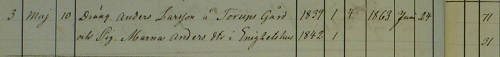 3 Maj 10 Dräng Anders Larsson å Torups Gård 1839 1 7 1863 Juni 24 71
och Pig. Marna Anders dtr i Enighetshus 1842 1 31